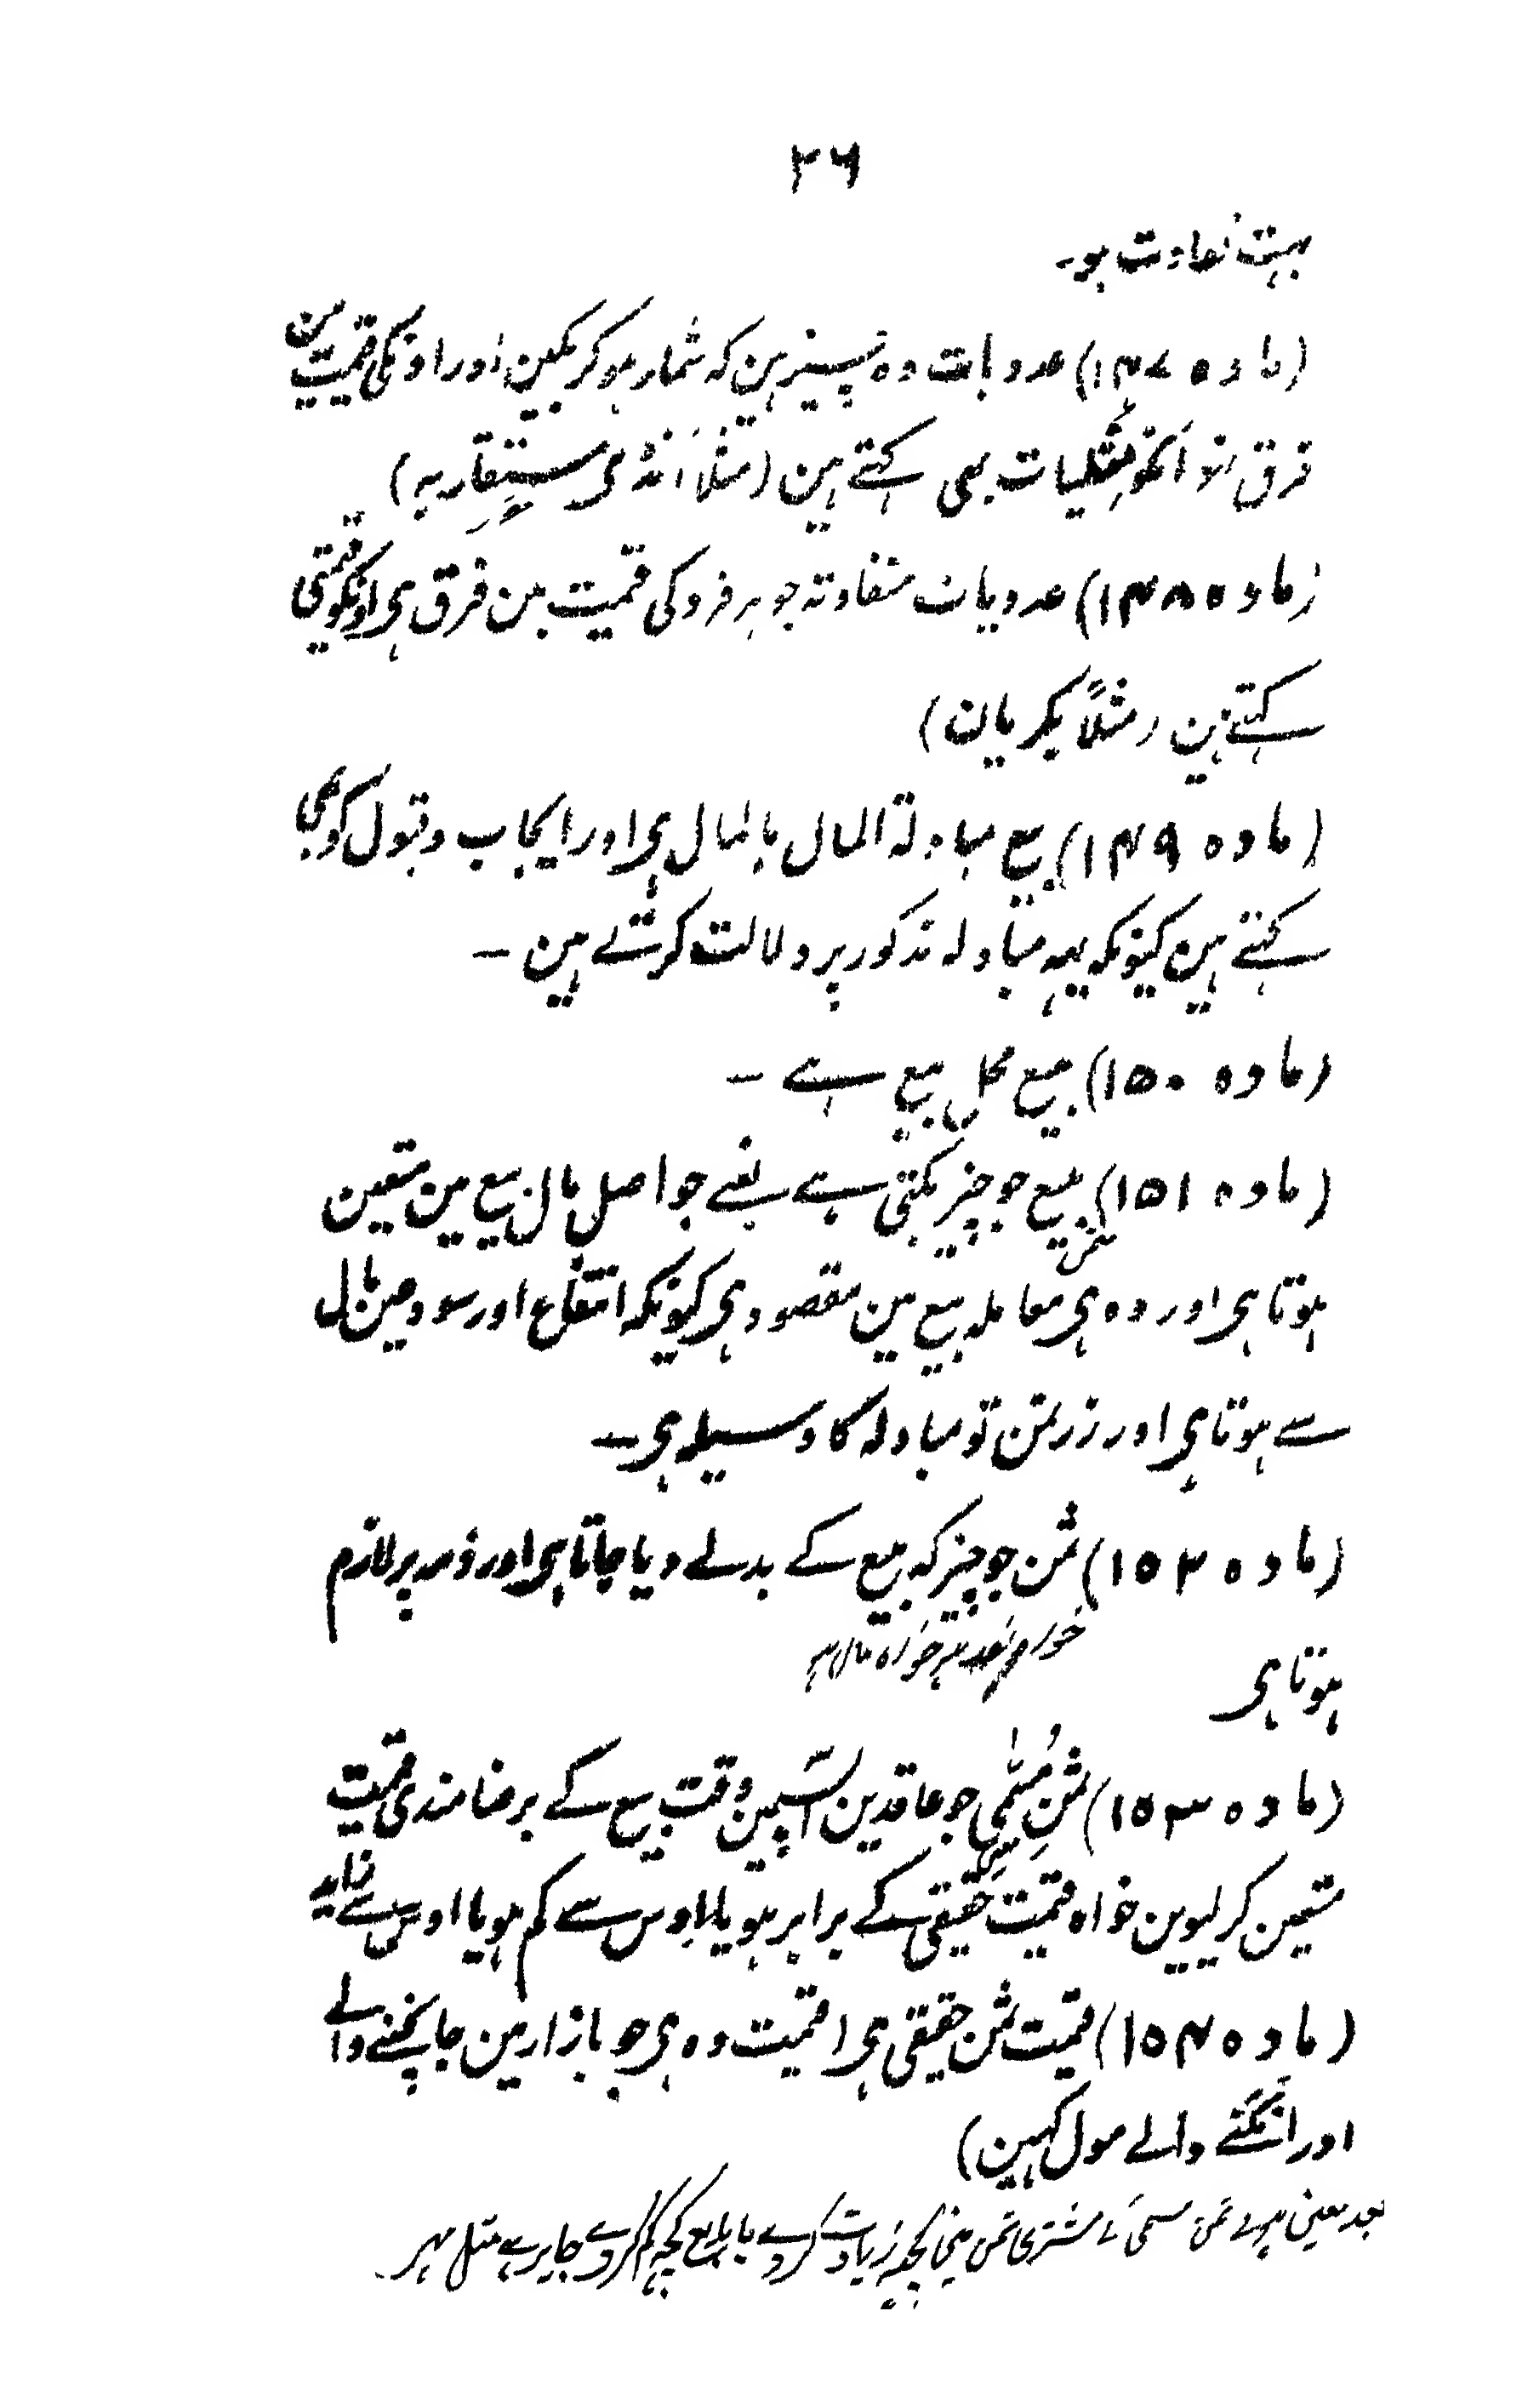 ۲۶
بہت تفاوت ہو۔
(مادہ ۱۴۷) عددیات وہ چیزین ہین کہ شمار ہو کر بکین اور اونکی قیمت مین
فرق نہو انکو مثلیات بہی کہتے ہین (مثلاً انڈی متقاربہ)
(مادہ ۱۴۸) عددیات متفاوتہ جو ہر فرد کی قیمت مین فرق ہی اونکو قیمتی
کہتے ہین (مثلاً بکریان)
(مادہ ۱۴۹) بیع مبادلۃ المال بالمال ہی اور ایجاب و قبول کو بھی
کہتے ہین کیونکہ یہہ مبادلہ مذکور پر دلالت کرتے ہین ۔
(مادہ ۱۵۰) مبیع محل بیع ہے ۔
(مادہ ۱۵۱) مبیع جو چیز بکتی ہے یعنے جو اصل مال بیع مین متعین
ہوتا ہی اور وہ ہی معاملہ بیع مین مقصود ہی کیونکہ انتفاع اور سود عین مال
سے ہوتا ہی اور زر ثمن تو مبادلہ کا وسیلہ ہی ۔
(مادہ ۱۵۲) ثمن جو چیز کہ مبیع کے بدلے دیا جاتا ہی اور ذمہ پر لازم
ہوتا ہی خواہ نقد ہو خواہ مال ہو
(مادہ ۱۵۳) ثمنِ مُسمّٰی جو عاقدین آپسمین وقت بیع کے برضامندی قیمت
متعین کر لیوین خواہ قیمت حقیقی کے برابر ہو یا اوس سے کم ہو یا اوس سے زاید
(مادہ ۱۵۴) قیمت ثمن حقیقی ہی (قیمت وہ ہی جو بازار مین جانچنے والے
اور آنکنے والے مول کہین)
بعد معین ہونے ثمن مسمی کے مشتری ثمن مین کچہہ زیادت کردے یا بایع کچہہ کم کردے جایز ہے مثل مہر ۔